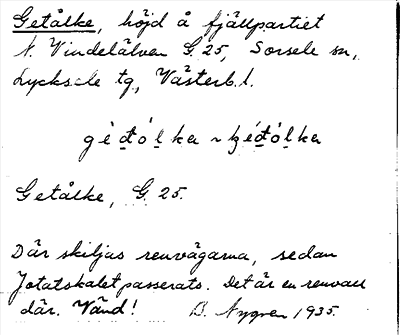 Getålke, höjd å fjällpartiet
N. Vindelälven G. 25, Sorsele sn,
Lycksele tg, Västerb. l.
Getålke, G. 25.
Där skiljas renvägarna, sedan
Jotatskalet passerats. Det är en renvall
där. Vänd! B. Nygren 1935.